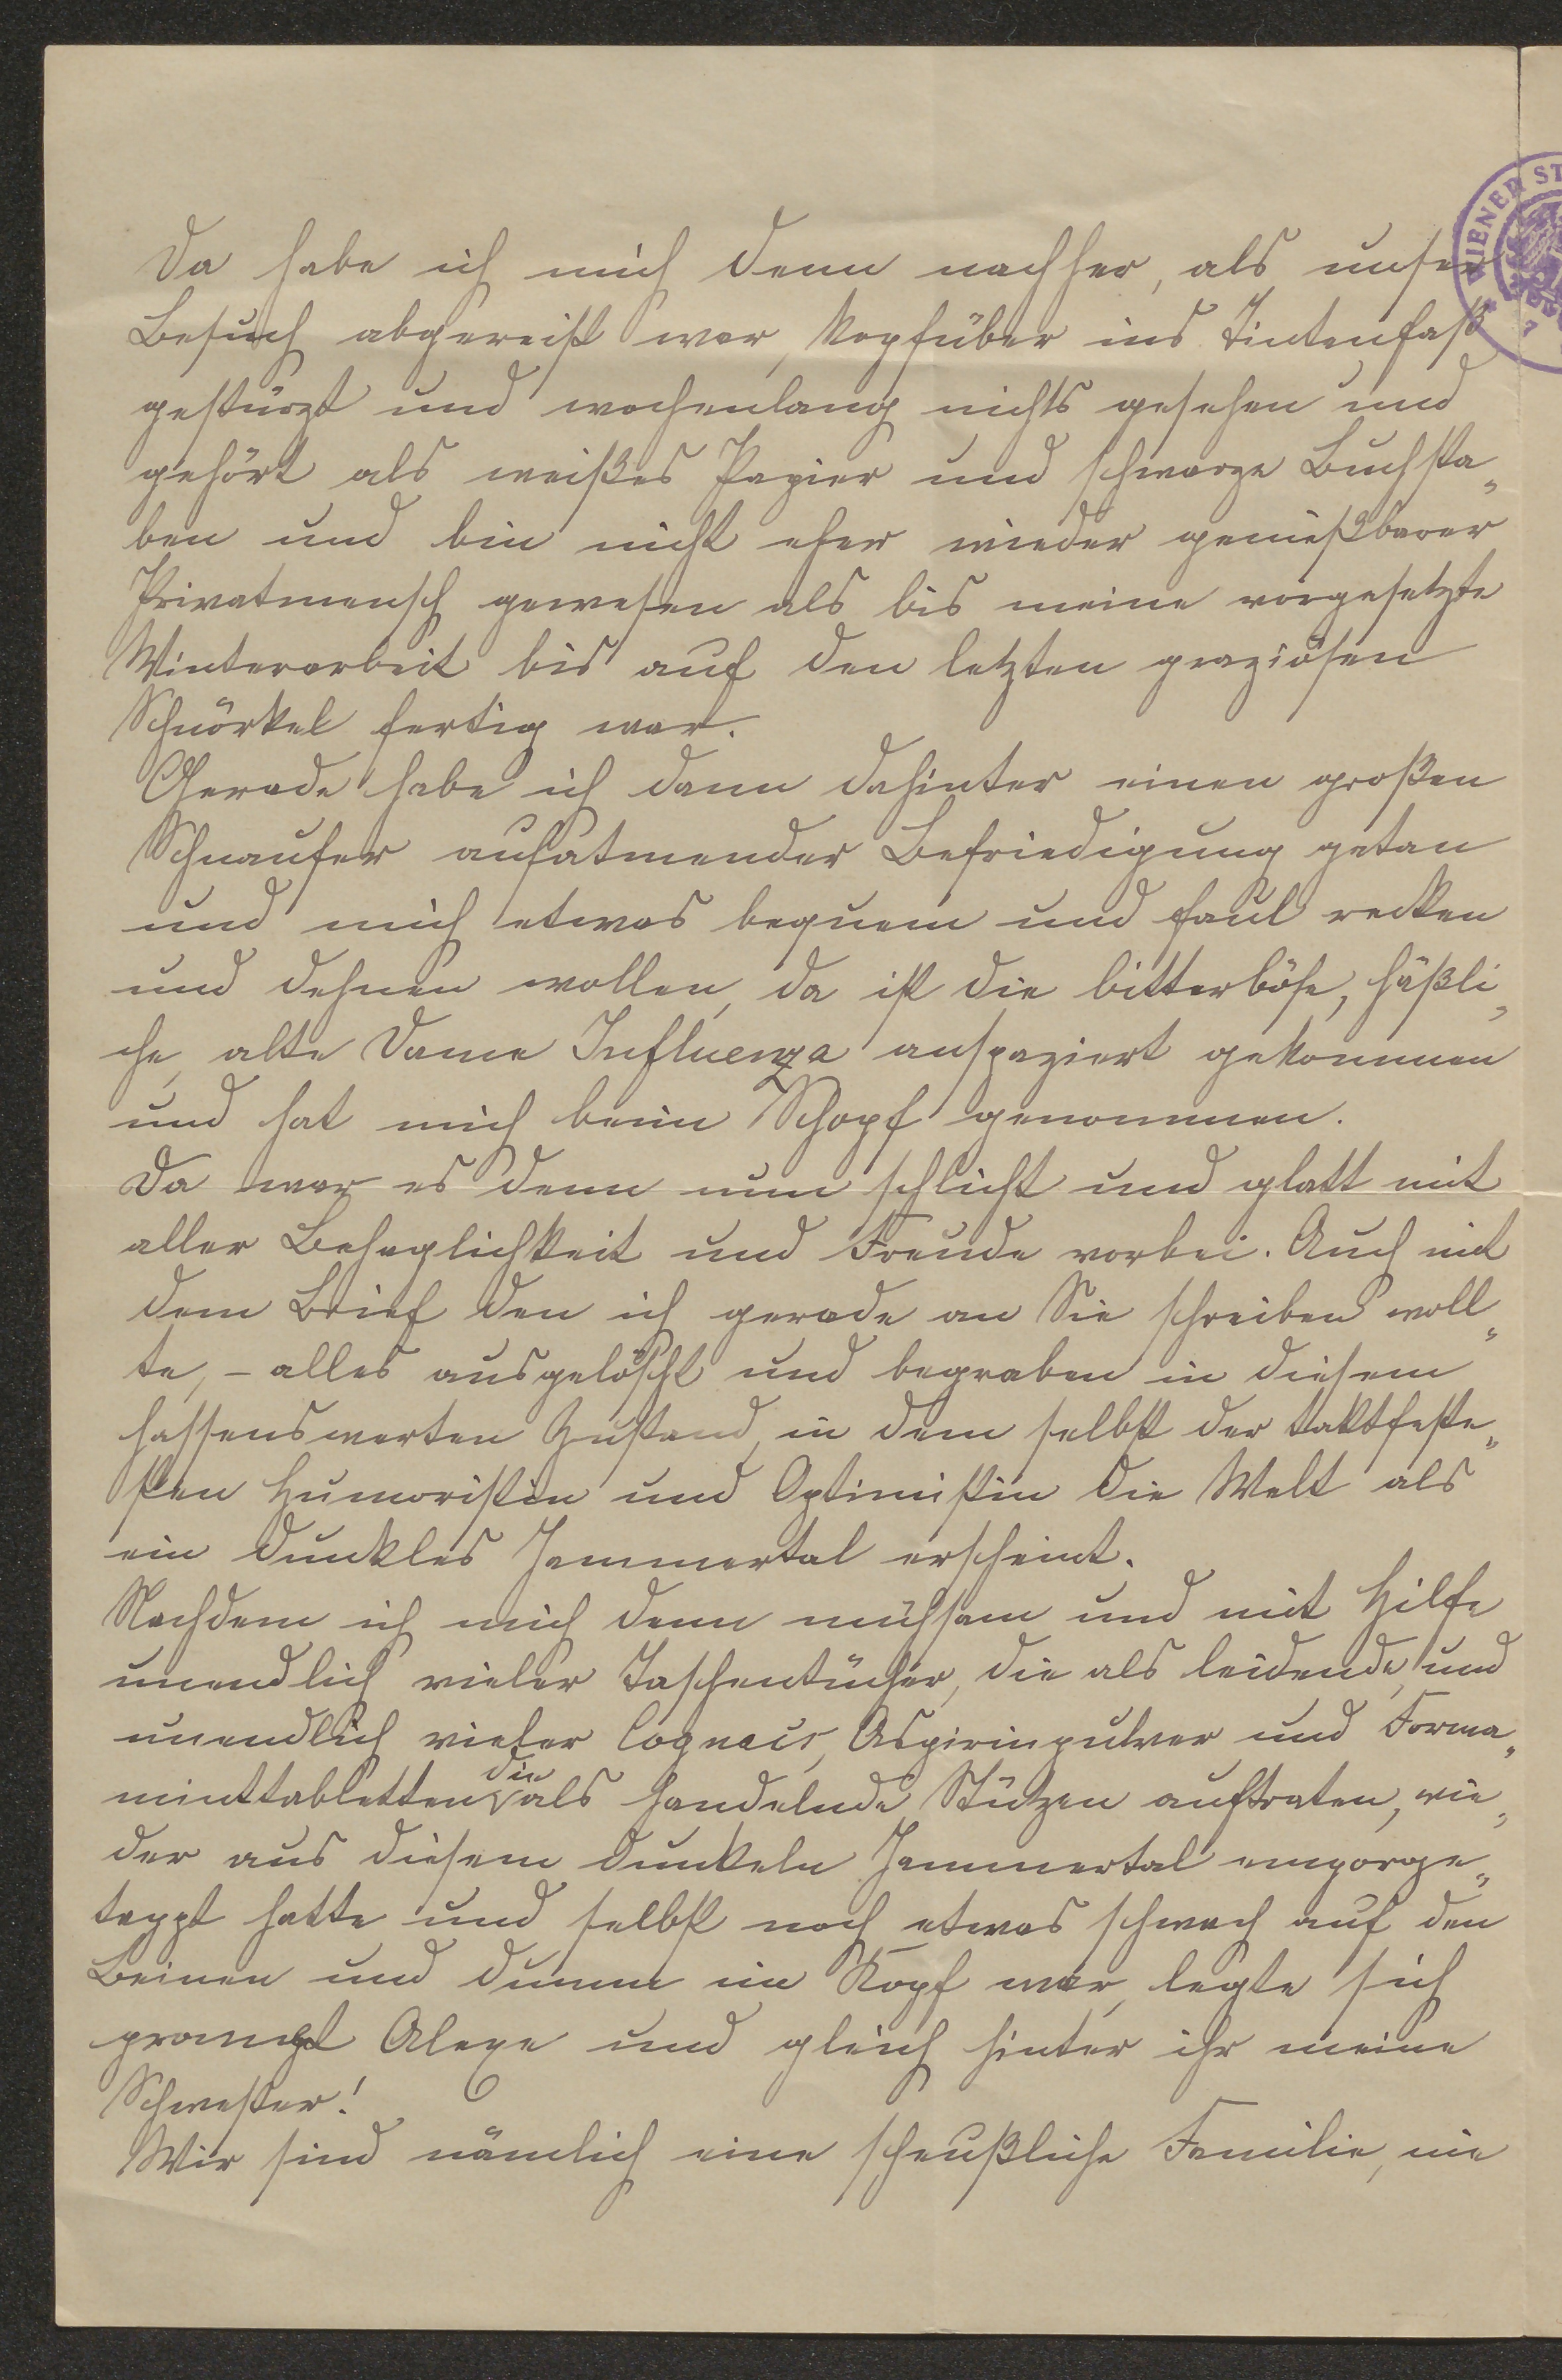 Da habe ich mich denn nachher, als unser
Besuch abgereist war, kopfüber ins Tintenfaß
gestürzt und wochenlang nichts gesehen und
gehört als weißes Papier und schwarze Buchsta„
ben und bin nicht eher wieder genießbarer
Privatmensch gewesen als bis meine vorgesetzte
Winterarbeit bis auf den letzten graziösen
Schnörkel fertig war.
Gerade habe ich dann dahinter einen großen
Schnaufer aufatmender Befriedigung getan
und mich etwas bequem und faul recken
und dehnen wollen, da ist die bitterböse, häßli„
che, alte Dame Influenza anspaziert gekommen
und hat mich beim Schopf genommen.
Da war es denn nun schlicht und glatt mit
aller Behaglichkeit und Freude vorbei. Auch mit
dem Brief den ich gerade an Sie schreiben woll„
te, – alles ausgelöscht und begraben in diesem
hassenswerten Zustand, in dem selbst der taktfeste„
sten Humoristin und Optimistin die Welt als
ein dunkles Jammertal erscheint.
Nachdem ich mich denn mühsam und mit Hilfe
unendlich vieler Taschentücher, die als leidende, und
unendlich vieler Cognacs, Aspirinpulver und Forma„
minttabletten die als handelnde Stützen auftraten, wie„
der aus diesem dunkeln Jammertal emporge„
tappt hatte und selbst noch etwas schwach auf den
Beinen und dumm im Kopf war, legte sich
prompt Alexe und gleich hinter ihr meine
Schwester!
Wir sind nämlich eine scheußliche Familie, nie
WIENER ST
7